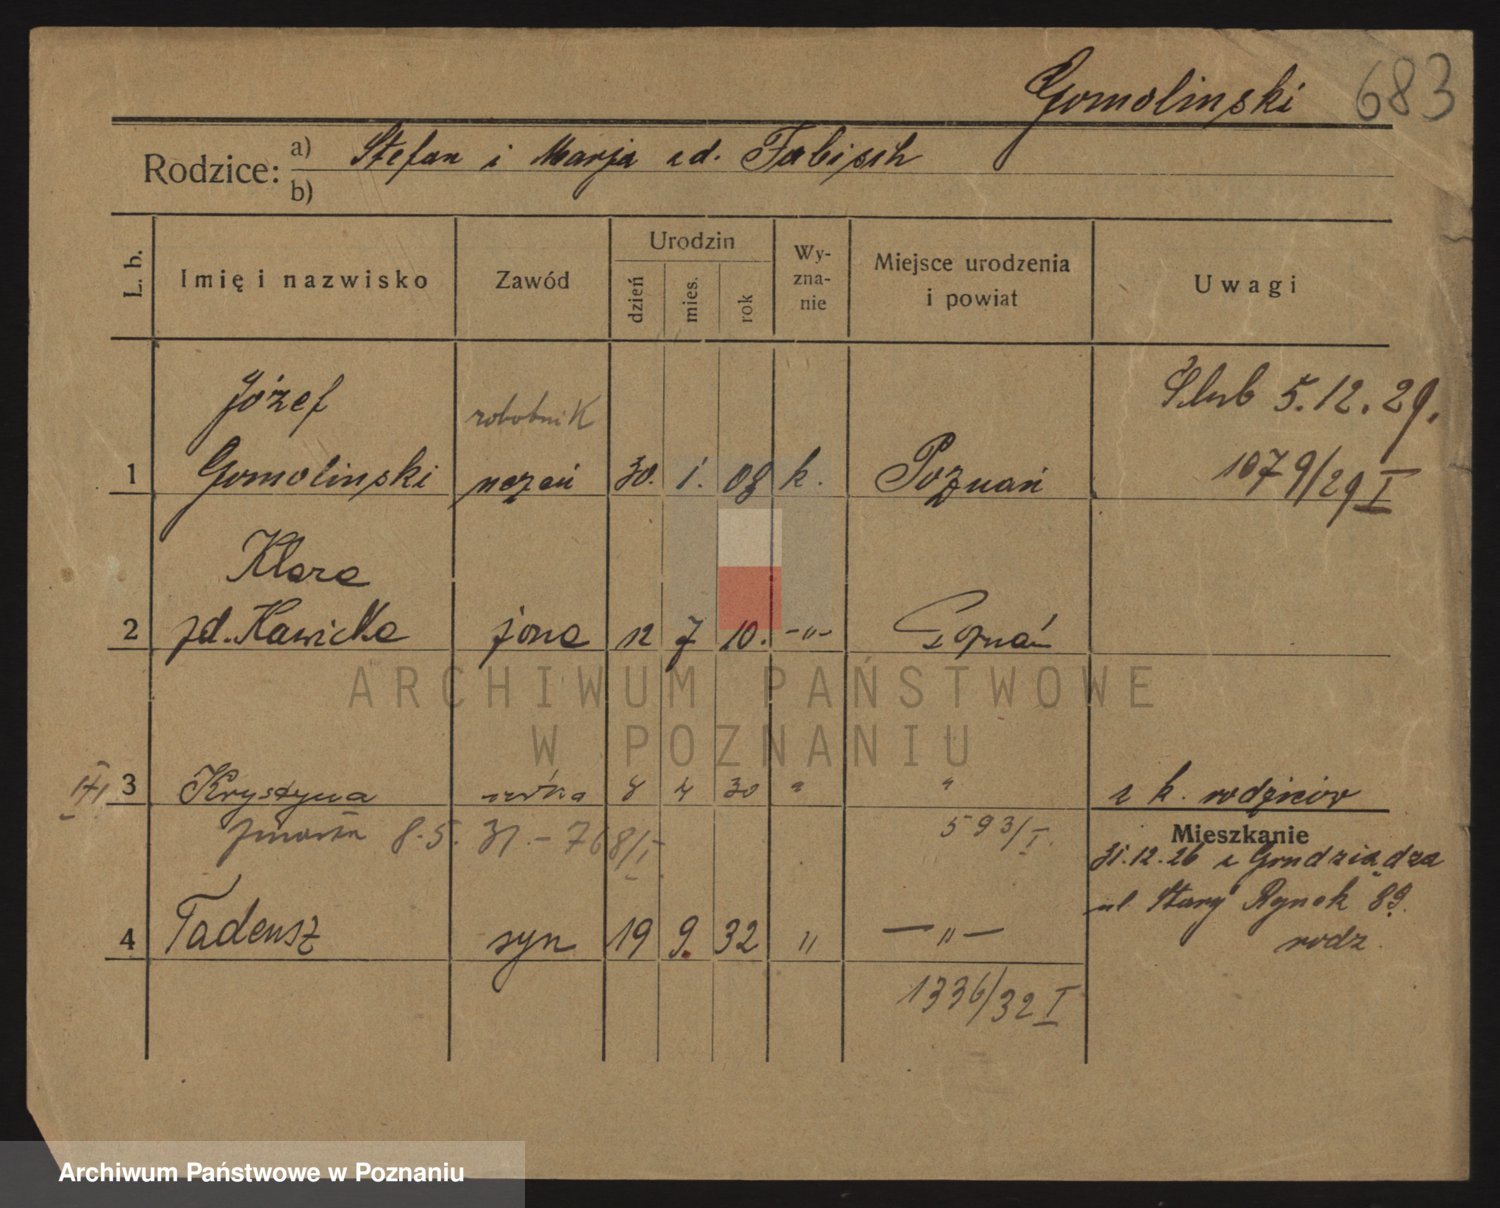 Gomolinski 683
Rodzice: a) Stefan i Marja zd. Fabisch
b)
L. b. Imię i nazwisko Zawód Urodzin dzień mies. rok Wyznanie Miejsce urodzenia i powiat Uwagi
Józef robotnik Ślub 5.12.29.
1 Gomolinski uczeń 30. 1. 08 k. Poznań 1079/29 I
Klara
2 zd. Kawicka żona 12 7 10. -"- Poznań
ARCHIWUM PAŃSTWOWE
W POZNANIU
3 Krystyna córka 8 4 30 " " z k. rodziców
zmarła 8.5.31. - 768/I 593/I.
Mieszkanie
31.12.26 z Grudziądza
ul Stary Rynek 89.
4 Tadeusz syn 19 9. 32 " -"- rodz.
1336/32 I
Archiwum Państwowe w Poznaniu